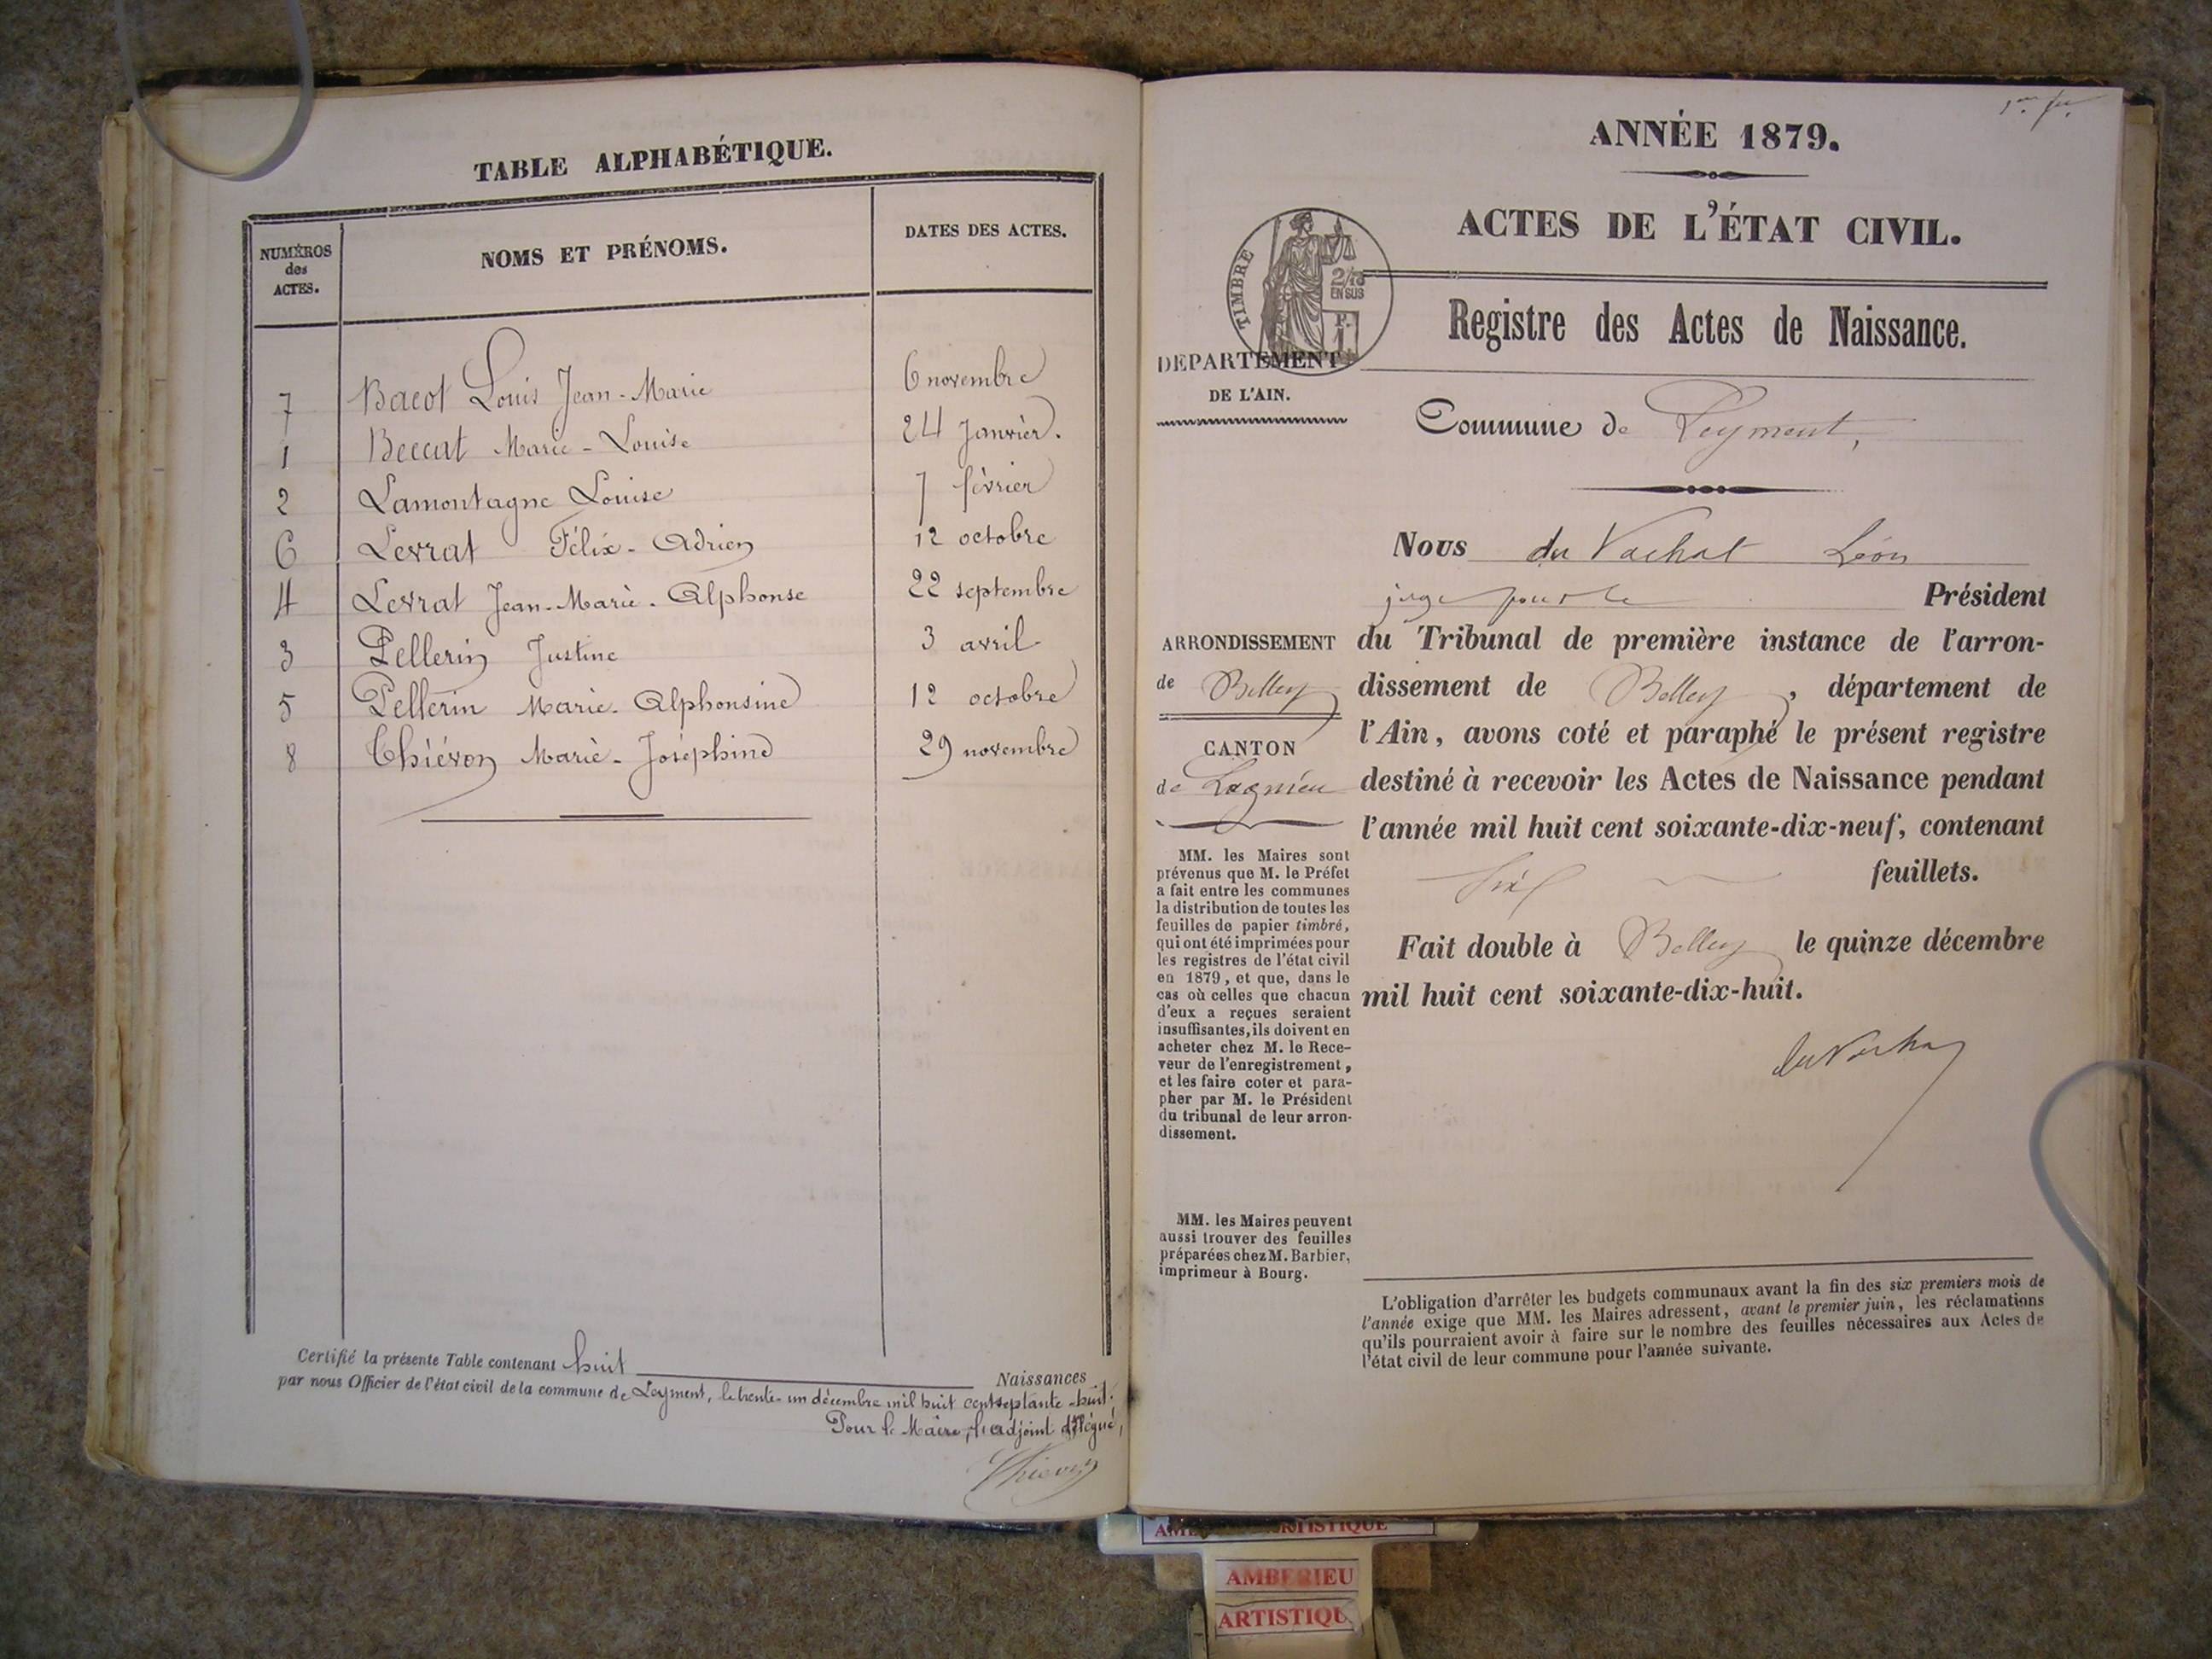 TABLE ALPHABÉTIQUE.
NUMÉROS des ACTES.
NOMS ET PRÉNOMS.
DATES DES ACTES.
7 Bacot Louis Jean-Marie 6 novembre
1 Beccat Marie-Louise 24 Janvier.
2 Lamontagne Louise 7 février
6 Levrat Félix-Adrien 12 octobre
4 Levrat Jean-Marie-Alphonse 22 septembre
3 Pellerin Justine 3 avril
5 Pellerin Marie-Alphonsine 12 octobre
8 Thiévon Marie-Joséphine 29 novembre
Certifié la présente Table contenant huit Naissances
par nous Officier de l'état civil de la commune de Leyment, le trente-un décembre mil huit cent septante-huit.
Pour le Maire, l'adjoint délégué,
Thievon
ANNÉE 1879.
ACTES DE L'ÉTAT CIVIL.
TIMBRE
2/10
EN SUS
Registre des Actes de Naissance.
DÉPARTEMENT
DE L'AIN.
Commune de Leyment,
Nous du Vachat Léon
juge pour le Président
du Tribunal de première instance de l'arron-
dissement de Belley, département de
l'Ain, avons coté et paraphé le présent registre
destiné à recevoir les Actes de Naissance pendant
l'année mil huit cent soixante-dix-neuf, contenant
six feuillets.
Fait double à Belley le quinze décembre
mil huit cent soixante-dix-huit.
du Vachat
ARRONDISSEMENT
de Belley
CANTON
de Lagnieu
MM. les Maires sont
prévenus que M. le Préfet
a fait entre les communes
la distribution de toutes les
feuilles de papier timbré,
qui ont été imprimées pour
les registres de l'état civil
en 1879, et que, dans le
cas où celles que chacun
d'eux a reçues seraient
insuffisantes, ils doivent en
acheter chez M. le Rece-
veur de l'enregistrement,
et les faire coter et para-
pher par M. le Président
du tribunal de leur arron-
dissement.
MM. les Maires peuvent
aussi trouver des feuilles
préparées chez M. Barbier,
imprimeur à Bourg.
L'obligation d'arrêter les budgets communaux avant la fin des six premiers mois de
l'année exige que MM. les Maires adressent, avant le premier juin, les réclamations
qu'ils pourraient avoir à faire sur le nombre des feuilles nécessaires aux Actes de
l'état civil de leur commune pour l'année suivante.
AMBERIEU
ARTISTIQU